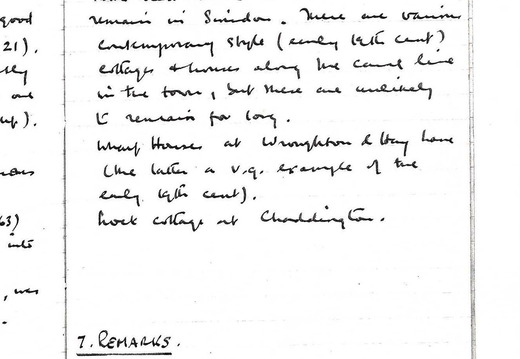 good
remain in Swindon. There are various
21).
contemporary style (early 19th cent)
cottages & houses along the canal line
one
in the town, but these are unlikely
up).
to remain for long.
Wharf Houses at Wroughton & Hay Lane
(the latter a v.g. example of the
early 19th cent).
63)
Lock cottage at Chaddington.
into
, was
7. REMARKS.